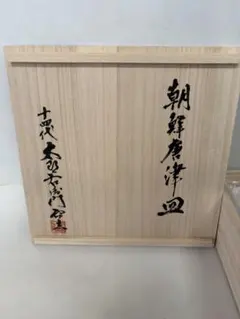 朝鮮唐津皿
十四代 太郎右衛門